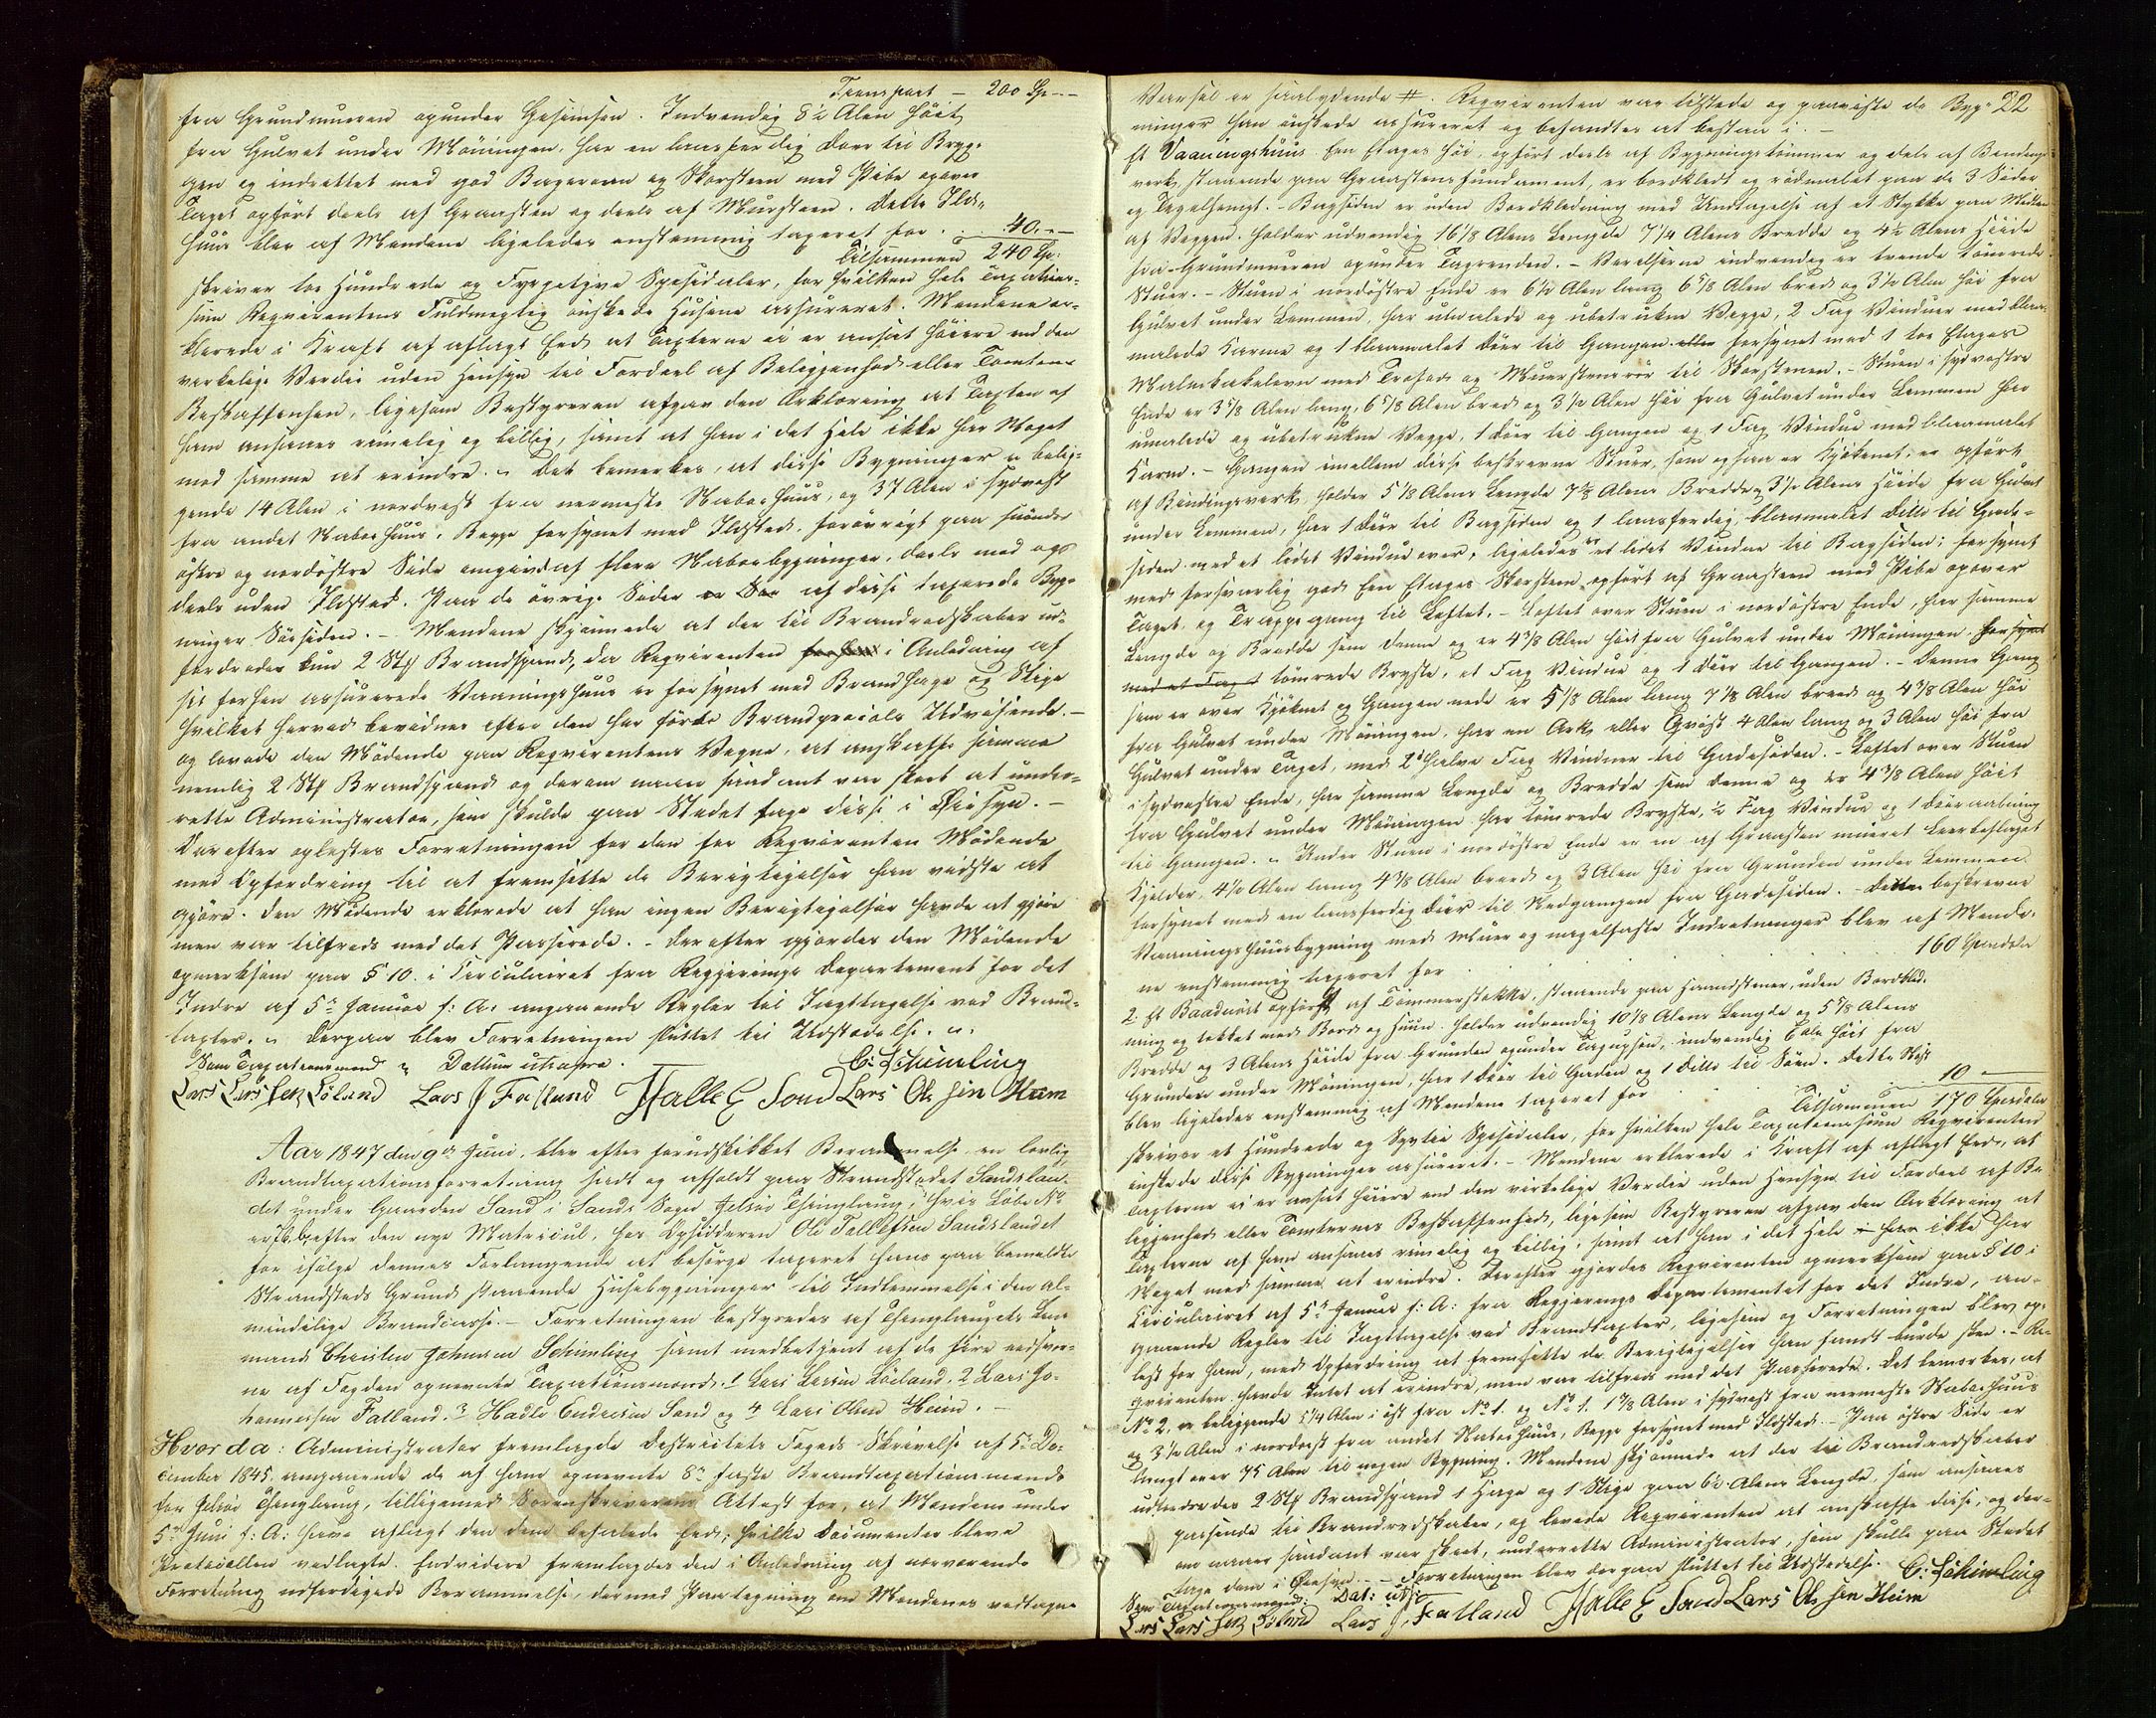 Transport – 200 Sp – –
fra Grundmuren opunder Gesimsen. Indvendig 8½ Alen høit
fra Gulvet under Møningen, har en laasferdig Døer til Bryg-
gen og indrettet med god Bagerovn og Skorsteen med Pibe opover
Taget opført deels af Graasten og deels af Mursteen. Dette Ild-
huus blev af Mændene ligeledes enstemmig taxeret for . . . 40. –
Tilsammen 240 Sp:
skriver toe Hundrede og Fyrgetyve Spesidaler, for hvilken hele Taxations-
sum Reqvirentens Fuldmegtig ønskede Husene assureret. Mændene er-
klerede i Kraft af aflagt Eed at Taxterne ei er ansat høiere end den
virkelige Verdie uden Hensyn til Fordeel af Beliggenhed eller Tomtens
Beskaffenhed, ligesom Bestyreren afgav den Erklering at Taxten af
ham ansaaes rimelig og billig, samt at han i det Hele ikke har Noget
mod samme at erindre. „ Det bemerkes, at disse Bygninger er belig-
gende 14 Alen i nordvest fra nermeste Naboe Huus, og 37 Alen i sydvest
fra andet Naboe Huus, Begge forsynet med Ildsted. forøvrigt paa søndre
østre og nordøstre Side omgivet af flere Naboebygninger, deels med og
deels uden Ildsted. Paa de øvrige Sider er Søe af disse taxerede Byg-
ninger Søesiden. – Mændene skjønnede at der til Brandredskaber ud-
fordredes kun 2 Stk Brandspand, da Reqvirenten forhen i Anledning af
sit forhen assurerede Vaaningshuus er forsynet med Brandhage og Stige
hvilket herved bevidnes efter den her førte Brandprotocols Udvisende. –
og lovede den Mødende paa Reqvirentens Vegne, at anskaffe samme
nemlig 2 Stk Brandspand og derom naar saadant var skeet at under-
rette Administrator, som skulde paa Stedet tage disse i Øiesyn. –
Derefter oplestes Forretningen for den for Reqvirenten Mødende
med Opfordring til at fremsette de Berigtigelser han vidste at
gjøre. Den Mødende erklerede at han ingen Berigtigelser havde at gjøre
men var tilfreds med det Passerede. – Derefter gjordes den Mødende
opmerksom paa § 10. i Circulairet fra Regjerings Departement for det
Indre af 5te Januar f: A: angaaende Regler til Iagttagelse ved Brand-
taxter. „ Derpaa blev Forretningen sluttet til Udstedelse. „.
Som Taxationsmend „ Dattum utsupra. C: Schimling
Lars Larssen Löland Lars J Fatland Halle E Sand Lars Olssen Heim
Aar 1847 den 9de Juni, blev efter forudskikket Berammelse en lovlig
Brandtaxationsforretning sadt og afholdt paa Strandstedet Sandslan-
det under Gaarden Sand i Sands Sogn Jelsøe Thinglaug, hvis Løbe No
er 76 b efter den nye Matricul, hos Opsidderen Ole Tollefsen Sandslandet
for ifølge dennes Forlangende at besørge taxeret hans paa bemeldte
Strandsteds Grund staaende Husebygninger til Indlemmelse i den al-
mindelige Brandcasse. – Forretningen bestyredes af Thinglaugets Lens-
mand Christen Johnsen Schimling samt medbetjent af de fire eedsvor-
ne af Fogden opnevnte Taxationsmend. 1 Lars Larsen Löeland, 2 Lars Jo-
hannesen Fatland. 3 Hadle Endresen Sand og 4 Lars Olsen Heim. –
Hvorda: Administrator fremlagde Districtets Fogeds Skrivelse af 5te De-
cember 1845. angaaende de af ham opnevnte 8te faste Brandtaxationsmend
for Jelsøe Thinglaug, tilligemed Sorenskriverens Attest for, at Mændene under
5te Juni f: A: have aflagt den dem befalede Eed; hvilke Documenter bleve
Protocollen vedlagte. Endvidere fremlagdes den i Anledning af nærværende
Forretning udferdigede Berammelse, dermed Paategning om Mændenes vedtagne
22
Varsel er saalydende #. Reqvirenten var tilstede og paaviste de Byg-
ninger han ønskede assureret og befandtes at bestaae i. –
Et Vaaningshuus Een Etages høi, opført deels af Bygningstømmer og deels af Bindings-
verk, staaende paa Graasteensfundament, er bordkledt og rødmalet paa de 3 Sider
og Tegelhengt. – Bagsiden er uden Bordkledning med Undtagelse af et Stykke paa Midten
af Veggen. holder udvendig 16 1/8 Alens Lengde 7 1/4 Alens Bredde og 4½ Alens Høide
fra Grundmuren opunder Tagrenden. – Verelserne indvendig er tvende tømrede
Stuer. – Stuen i nordøstre Ende er 6½ Alen lang 6 5/8 Alen bred og 3½ Alen høi fra
Gulvet under Lemmen, har umalede og ubetrukne Vegge, 2 Fag Vinduer med blaa-
malede Karme og 1 blaamalet Døer til Gangen. eller forsynet med 1 toe Etages
Malmkakelovn med Trefod og Muursteensrør til Skorstenen. – Stuen i sydvestre
Ende er 3 5/8 Alen lang, 6 5/8 Alen bred og 3½ Alen høi fra Gulvet under Lemmen har
umalede og ubetrukne Vegge, 1 Døer til Gangen og 1 Fag Vindue med blaamalet
Karm. – Gangen imellem disse beskrevne Stuer, som ogsaa er Kjøkenet, er opført
af Bindingsverk, holder 5 1/8 Alens Lengde 7 1/8 Alens Bredde og 3½ Alens Høide fra Gulvet
under Lemmen, har 1 Døer til Bagsiden og 1 laasferdig, blaamalet ditto til Gade-
siden med et lidet Vindue over, ligeledes er et lidet Vindue til Bagsiden; forsynt
med forsvarlig god Een Etages Skorsteen opført af Graasteen med Pibe opover
Taget, og Trappegang til Loftet. – Loftet over Stuen i nordøstre Ende, har samme
Lengde og Bredde som denne og er 4 3/8 Alen høit fra Gulvet under Møningen. forsynt
med et Fag 1 tømrede Bryste, et Fag Vindue og 1 Døer til Gangen. – Denne Gang
som er over Kjøknet og Gangen nede er 5 1/8 Alen lang 7 1/8 Alen breed og 4 3/8 Alen høi
fra Gulvet under Møningen, har en Ark, eller Qvist 4 Alen lang og 3 Alen høi fra
Gulvet under Taget, med 2de halve Fag Vinduer til Gadesiden. – Loftet over Stuen
i sydvestre Ende, har samme Lengde og Bredde som denne og er 4 3/8 Alen høit
fra Gulvet under Møningen har tømrede Bryste, ½ Fag Vindue og 1 Døeraabning
til Gangen. „ Under Stuen i nordøstre Ende er en af Graasten muret Leerbeslaget
Kjelder, 4½ Alen lang 4 3/8 Alen breed og 3 Alen høi fra Grunden under Lemmen
forsynet med en laasferdig Døer til Nedgangen fra Gadesiden. – Dette beskrevne
Vaaningshuusbygning med Muur og nagelfaste Indretninger blev af Mænde-
ne enstemmig taxeret for . . . 160 Spesdaler
2. Et Baadnøst opført af Tømmerstokke, staaende paa Haandsteener, uden Bordkled-
ning og tekket med Bord og Huun. holder udvendig 10 1/8 Alens Lengde og 5 5/8 Alens
Bredde og 3 Alens Høide fra Grunden opunder Tagupsen, indvendig 6 Alen høit fra
Grunden under Møningen, har 1 Døer til Gaden og 1 ditto til Søen. Dette Nøst
blev ligeledes enstemmig af Mændene taxeret for . . . 10 –
Tilsammen 170 Spesdaler
skriver et Hundrede og Sytti Spesidaler, for hvilken hele Taxationssum Reqvirenten
ønskede disse Bygninger assureret. – Mændene erklerede i Kraft af aflagt Eed, at
Taxterne ei er ansat høiere end den virkelige Verdie uden Hensyn til Fordeel af Be-
liggenhed eller Tomternes Beskaffenhed, ligesom Bestyreren afgav den Erklering at
Taxterne af ham ansaaes rimelig og billig, samt at han i det Hele i han ikke har
Noget mod samme at erindre. Derefter gjordes Reqvirenten opmerksom paa § 10 i
Circulairet af 5te Januar f: A: fra Regjerings Departementet for det Indre, an-
gaaende Regler til Iagttagelse ved Brandtaxter, ligesom og Forretningen blev op-
lest for ham, med Opfordring at fremsette de Berigtigelser han fandt burde skee. – Re-
qvirenten havde Intet at erindre, men var tilfreds med det Passerede. Det bemerkes, at
No 2. er beliggende 5 1/4 Alen i øst fra No 1. og No 1. 1 7/8 Alen i sydvest fra nermeste Naboehuus
og 3½ Alen i nordvest fra andet Naboehuus, Begge forsynet med Ildsted. – Paa østre Side er
langt over 75 Alen til nogen Bygning. Mændene skjønnede at der til Brandredskaber
udfordredes 2 Stk Brandspand 1 Hage og 1 Stige paa 6½ Alens Lengde, som ansaaes
passende til Brandredskaber, og lovede Reqvirenten at anskaffe disse, og der-
om naar saadant var skeet, underrette Administrator, som skulde paa Stedet
tage dem i Øiesyn. – Forretningen blev derpaa sluttet til Udstedelse. C: Schimling
Som Taxationsmend: Dat: uts:
Lars Larssen Löland Lars J. Fatland Halle E Sand Lars Olssen Heim